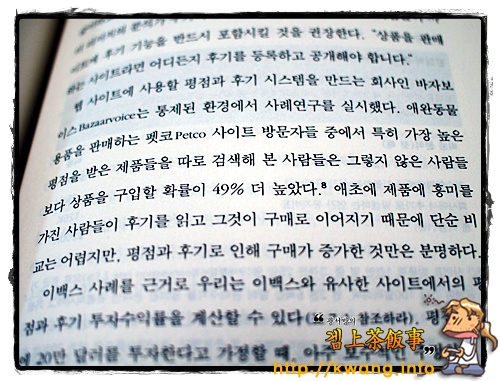 사이트에 후기 기능을 반드시 포함시킬 것을 권장한다. "상품을 판매
하는 사이트라면 어디든지 후기를 등록하고 공개해야 합니다."
웹 사이트에 사용할 평점과 후기 시스템을 만드는 회사인 바자보
이스Bazaarvoice는 통제된 환경에서 사례연구를 실시했다. 애완동물
용품을 판매하는 펫코Petco 사이트 방문자들 중에서 특히 가장 높은
평점을 받은 제품들을 따로 검색해 본 사람들은 그렇지 않은 사람들
보다 상품을 구입할 확률이 49% 더 높았다.8 애초에 제품에 흥미를
가진 사람들이 후기를 읽고 그것이 구매로 이어지기 때문에 단순 비
교는 어렵지만, 평점과 후기로 인해 구매가 증가한 것만은 분명하다.
이백스 사례를 근거로 우리는 이백스와 유사한 사이트에서의 평
점과 후기 투자수익률을 계산할 수 있다( 참조하라). 평
에 20만 달러를 투자한다고 가정할 때, 아주
"광서방의
컴上茶飯事"
http://kwong.info